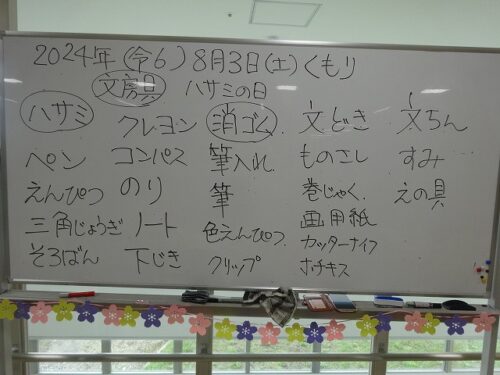 2024年(令6) 8月3日(土)くもり
文房具 ハサミの日
ハサミ
ペン
えんぴつ
三角じょうぎ
そろばん
クレヨン
コンパス
のり
ノート
下じき
消ゴム
筆入れ
筆
色えんぴつ
クリップ
文どき
ものさし
巻じゃく
画用紙
カッターナイフ
ホチキス
文ちん
すみ
えの具